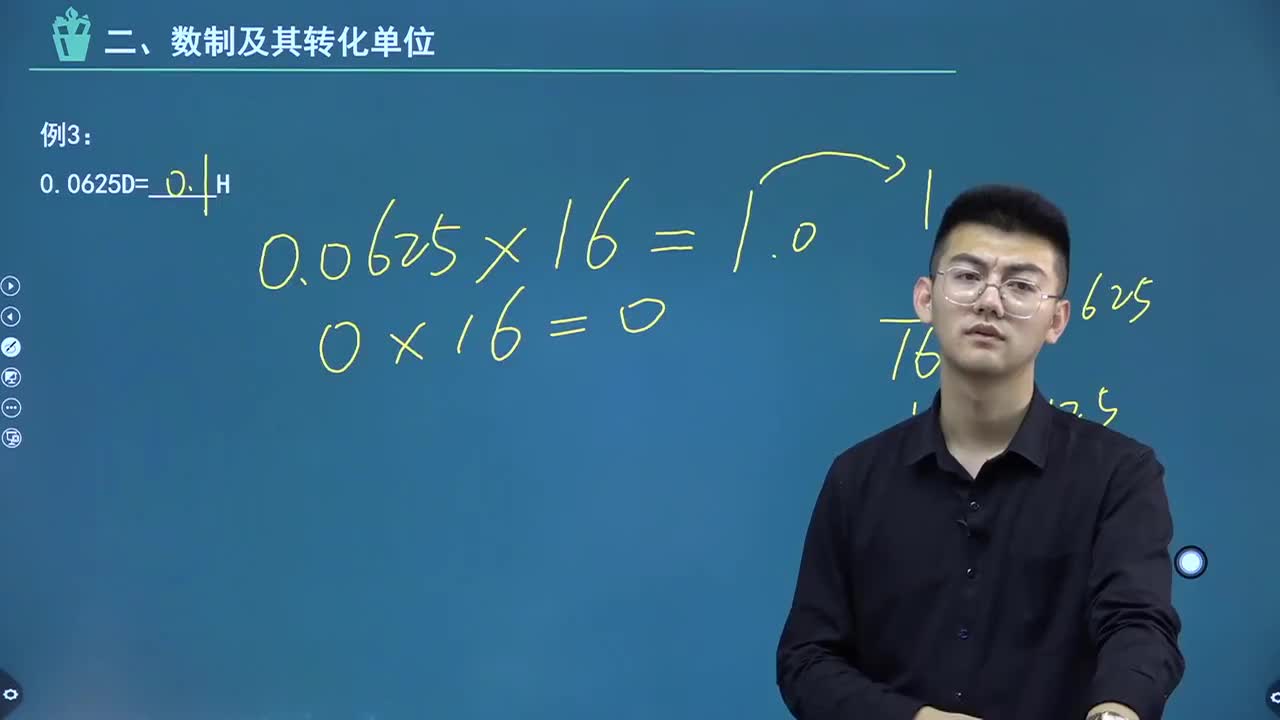 二、数制及其转化单位
例3:
0.0625D=0.1H
0.0625×16=1.0
1
0×16=0
625
16